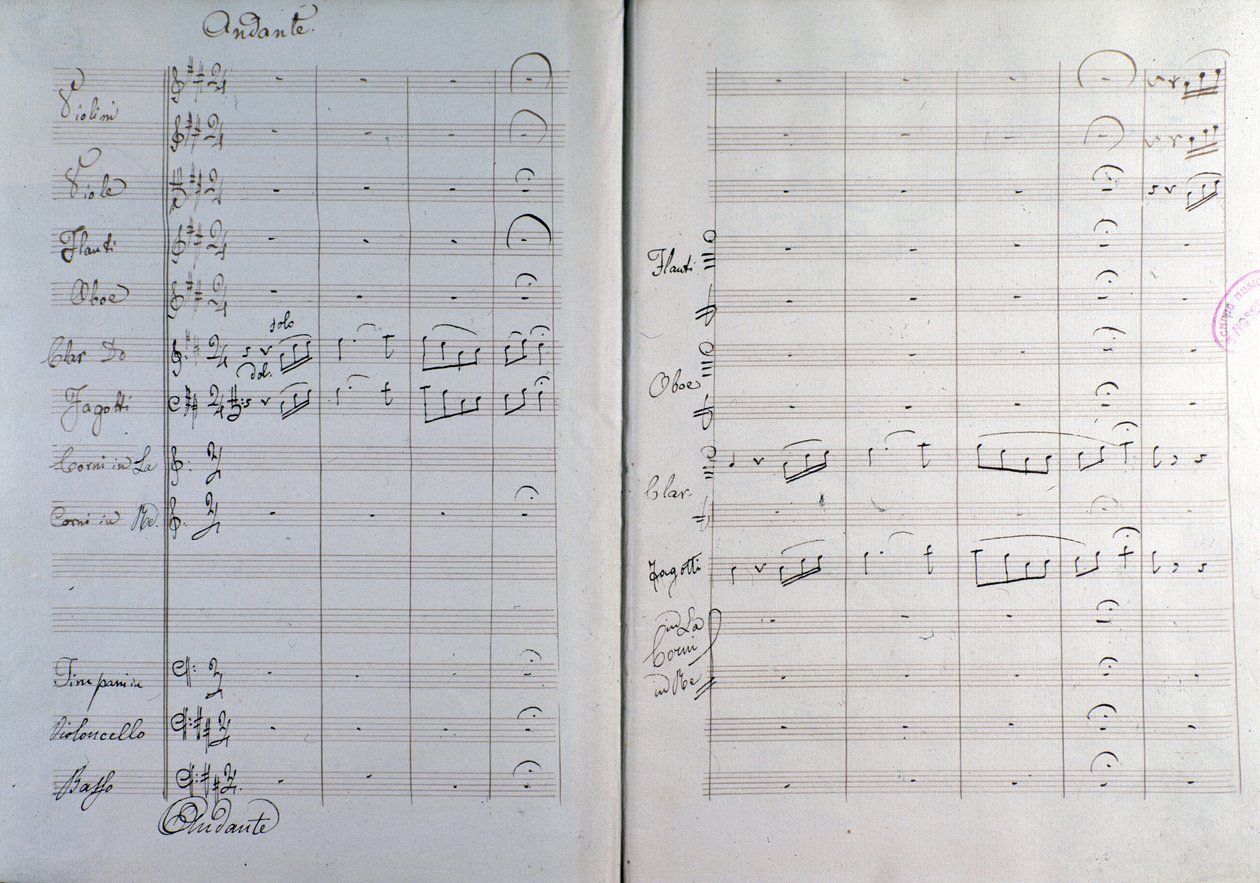 Andante.
Violini
Viole
Flauti
Oboe
solo
Clar Do
dol.
Fagotti
Corni in La
Corni in Re.
Timpani in
Violoncello
Basso
Andante
Flauti
Oboe
Clar.
Fagotti
in La
Corni
in Re